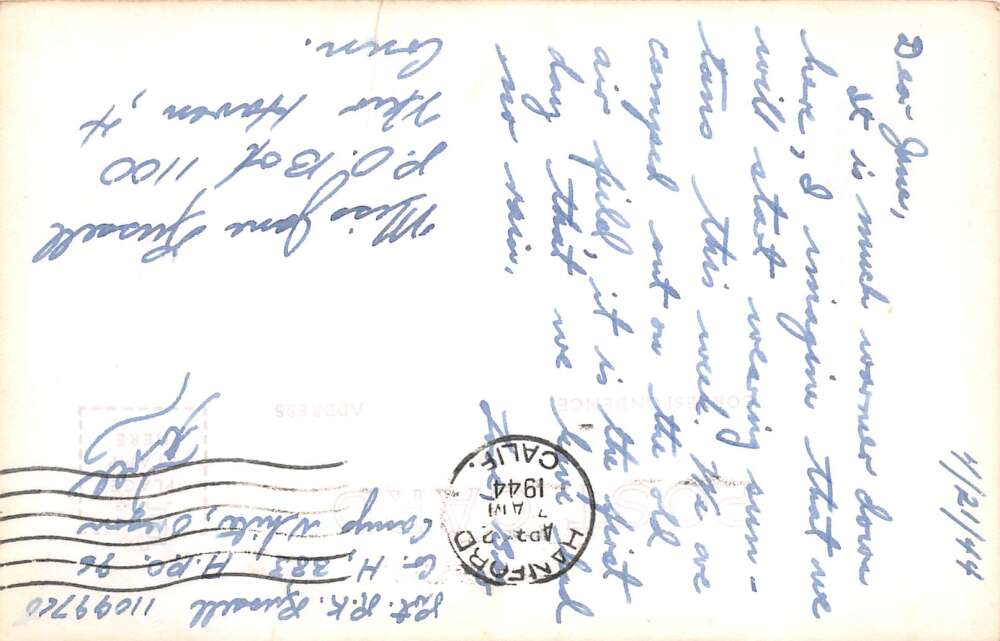 4/21/44
Dear Jane,
It is much warmer down
here, I imagine that we
will start wearing sun-
tans this week. We are
camped out on the old
air feild, it is the first
day that we have had
no rain.
Love
Pvt. R.K. Russell
Co. H, 383, A.P.O. 96
Camp White, Oregon
Free
HANFORD
APR
7 AM
1944
CALIF.
POST CARD
CORRESPONDENCE
ADDRESS
PLACE
HERE
Miss Jane Russell
P.O. Box 1100
New Haven, 4
Conn.